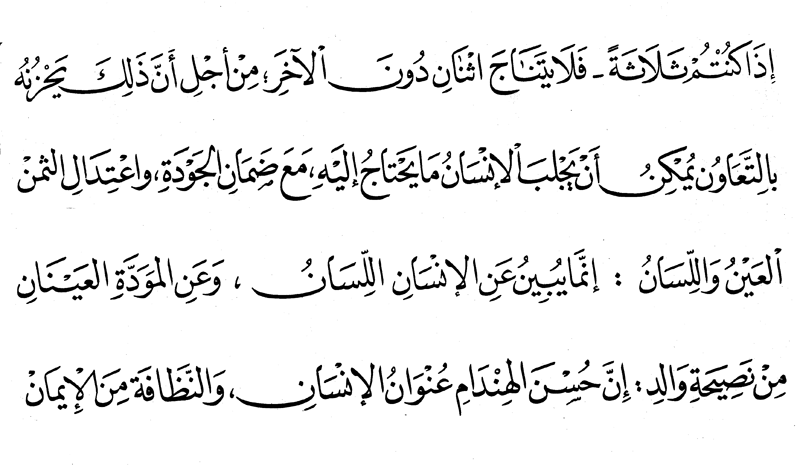 إِذَا كُنْتُمْ ثَلَاثَةً - فَلَا يَتَنَاجَ اثْنَانِ دُونَ الْآخَرِ؛ مِنْ أَجْلِ أَنَّ ذَلِكَ يَحْزُنُهُ
بِالتَّعَاوُنِ يُمْكِنُ أَنْ يَجْلِبَ الْإِنْسَانُ مَا يَحْتَاجُ إِلَيْهِ، مَعَ ضَمَانِ الجَوْدَةِ، وَاعْتِدَالِ الثَّمَنْ
الْعَيْنُ وَاللِّسَانُ : إِنَّمَا يُبِينُ عَنِ الإِنْسَانِ اللِّسَانُ ، وَعَنِ المَوَدَّةِ العَيْنَانِ
مِنْ نَصِيحَةِ وَالِدٍ : إِنَّ حُسْنَ الهِنْدَامِ عُنْوَانُ الإِنْسَانِ، وَالنَّظَافَةَ مِنَ الْإِيمَانْ